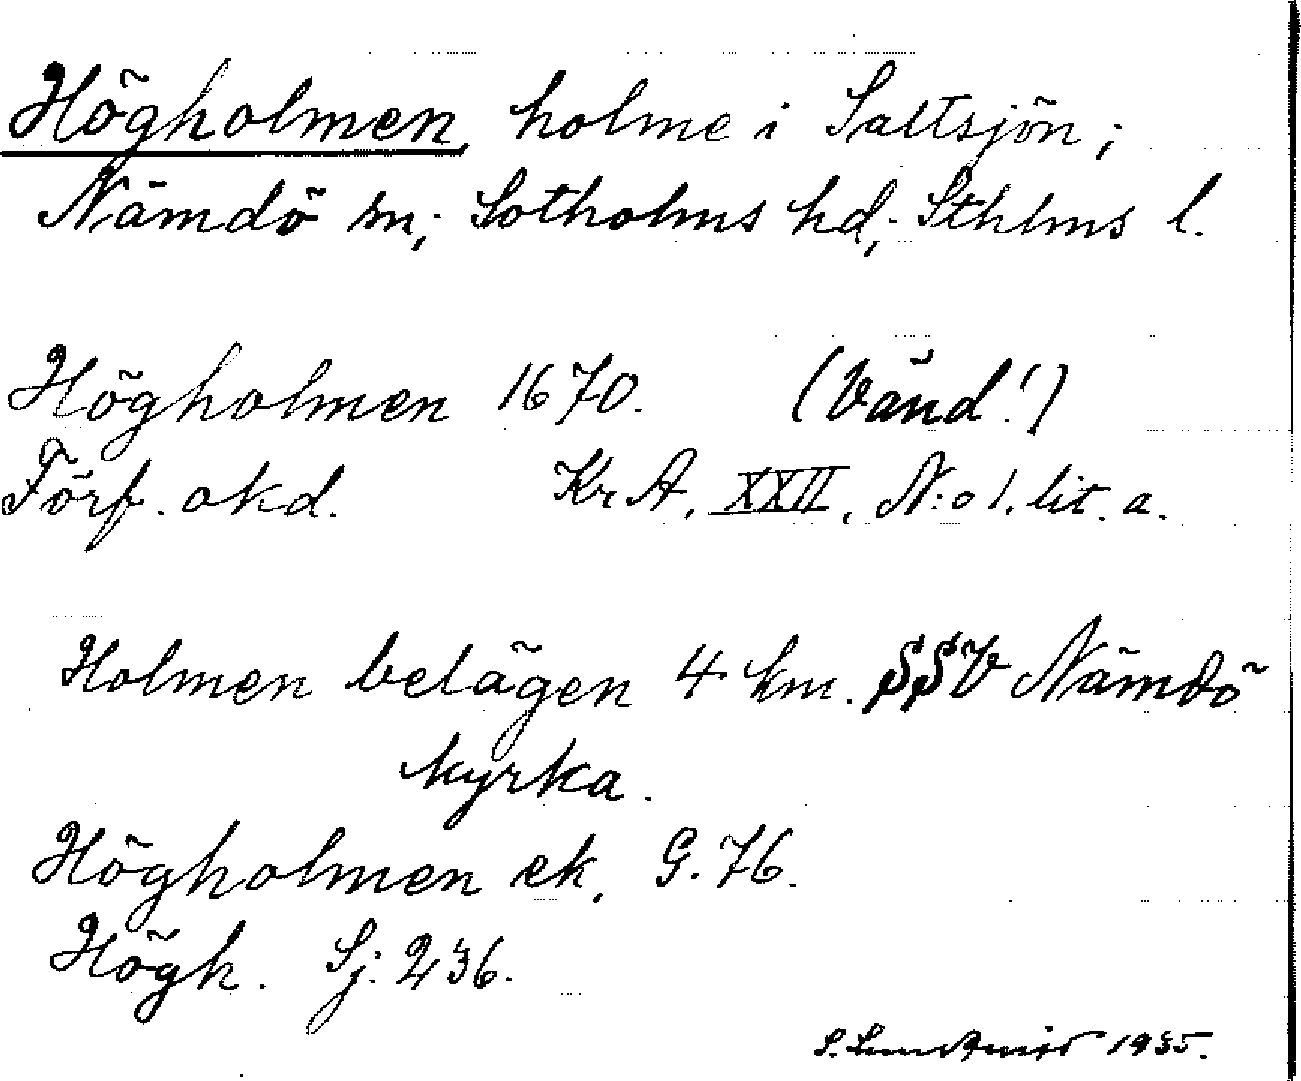 Högholmen, holme i Saltsjön;
Nämdö sn; Sotholms hd; Sthlms l.
Högholmen 1670. (Vänd!)
Förf. okd. Kr A, XXII, N:o 1. lit. a.
Holmen belägen 4 km. SSV Nämdö
kyrka.
Högholmen ek, G. 76.
Högh. Sj: 236.
S. 1935.